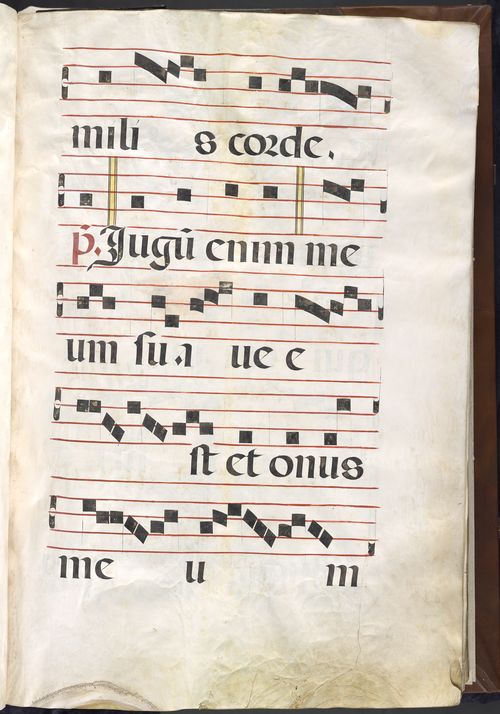 mili s corde.
p̃. Jugũ enim me
um sua ue e
st et onus
me u m